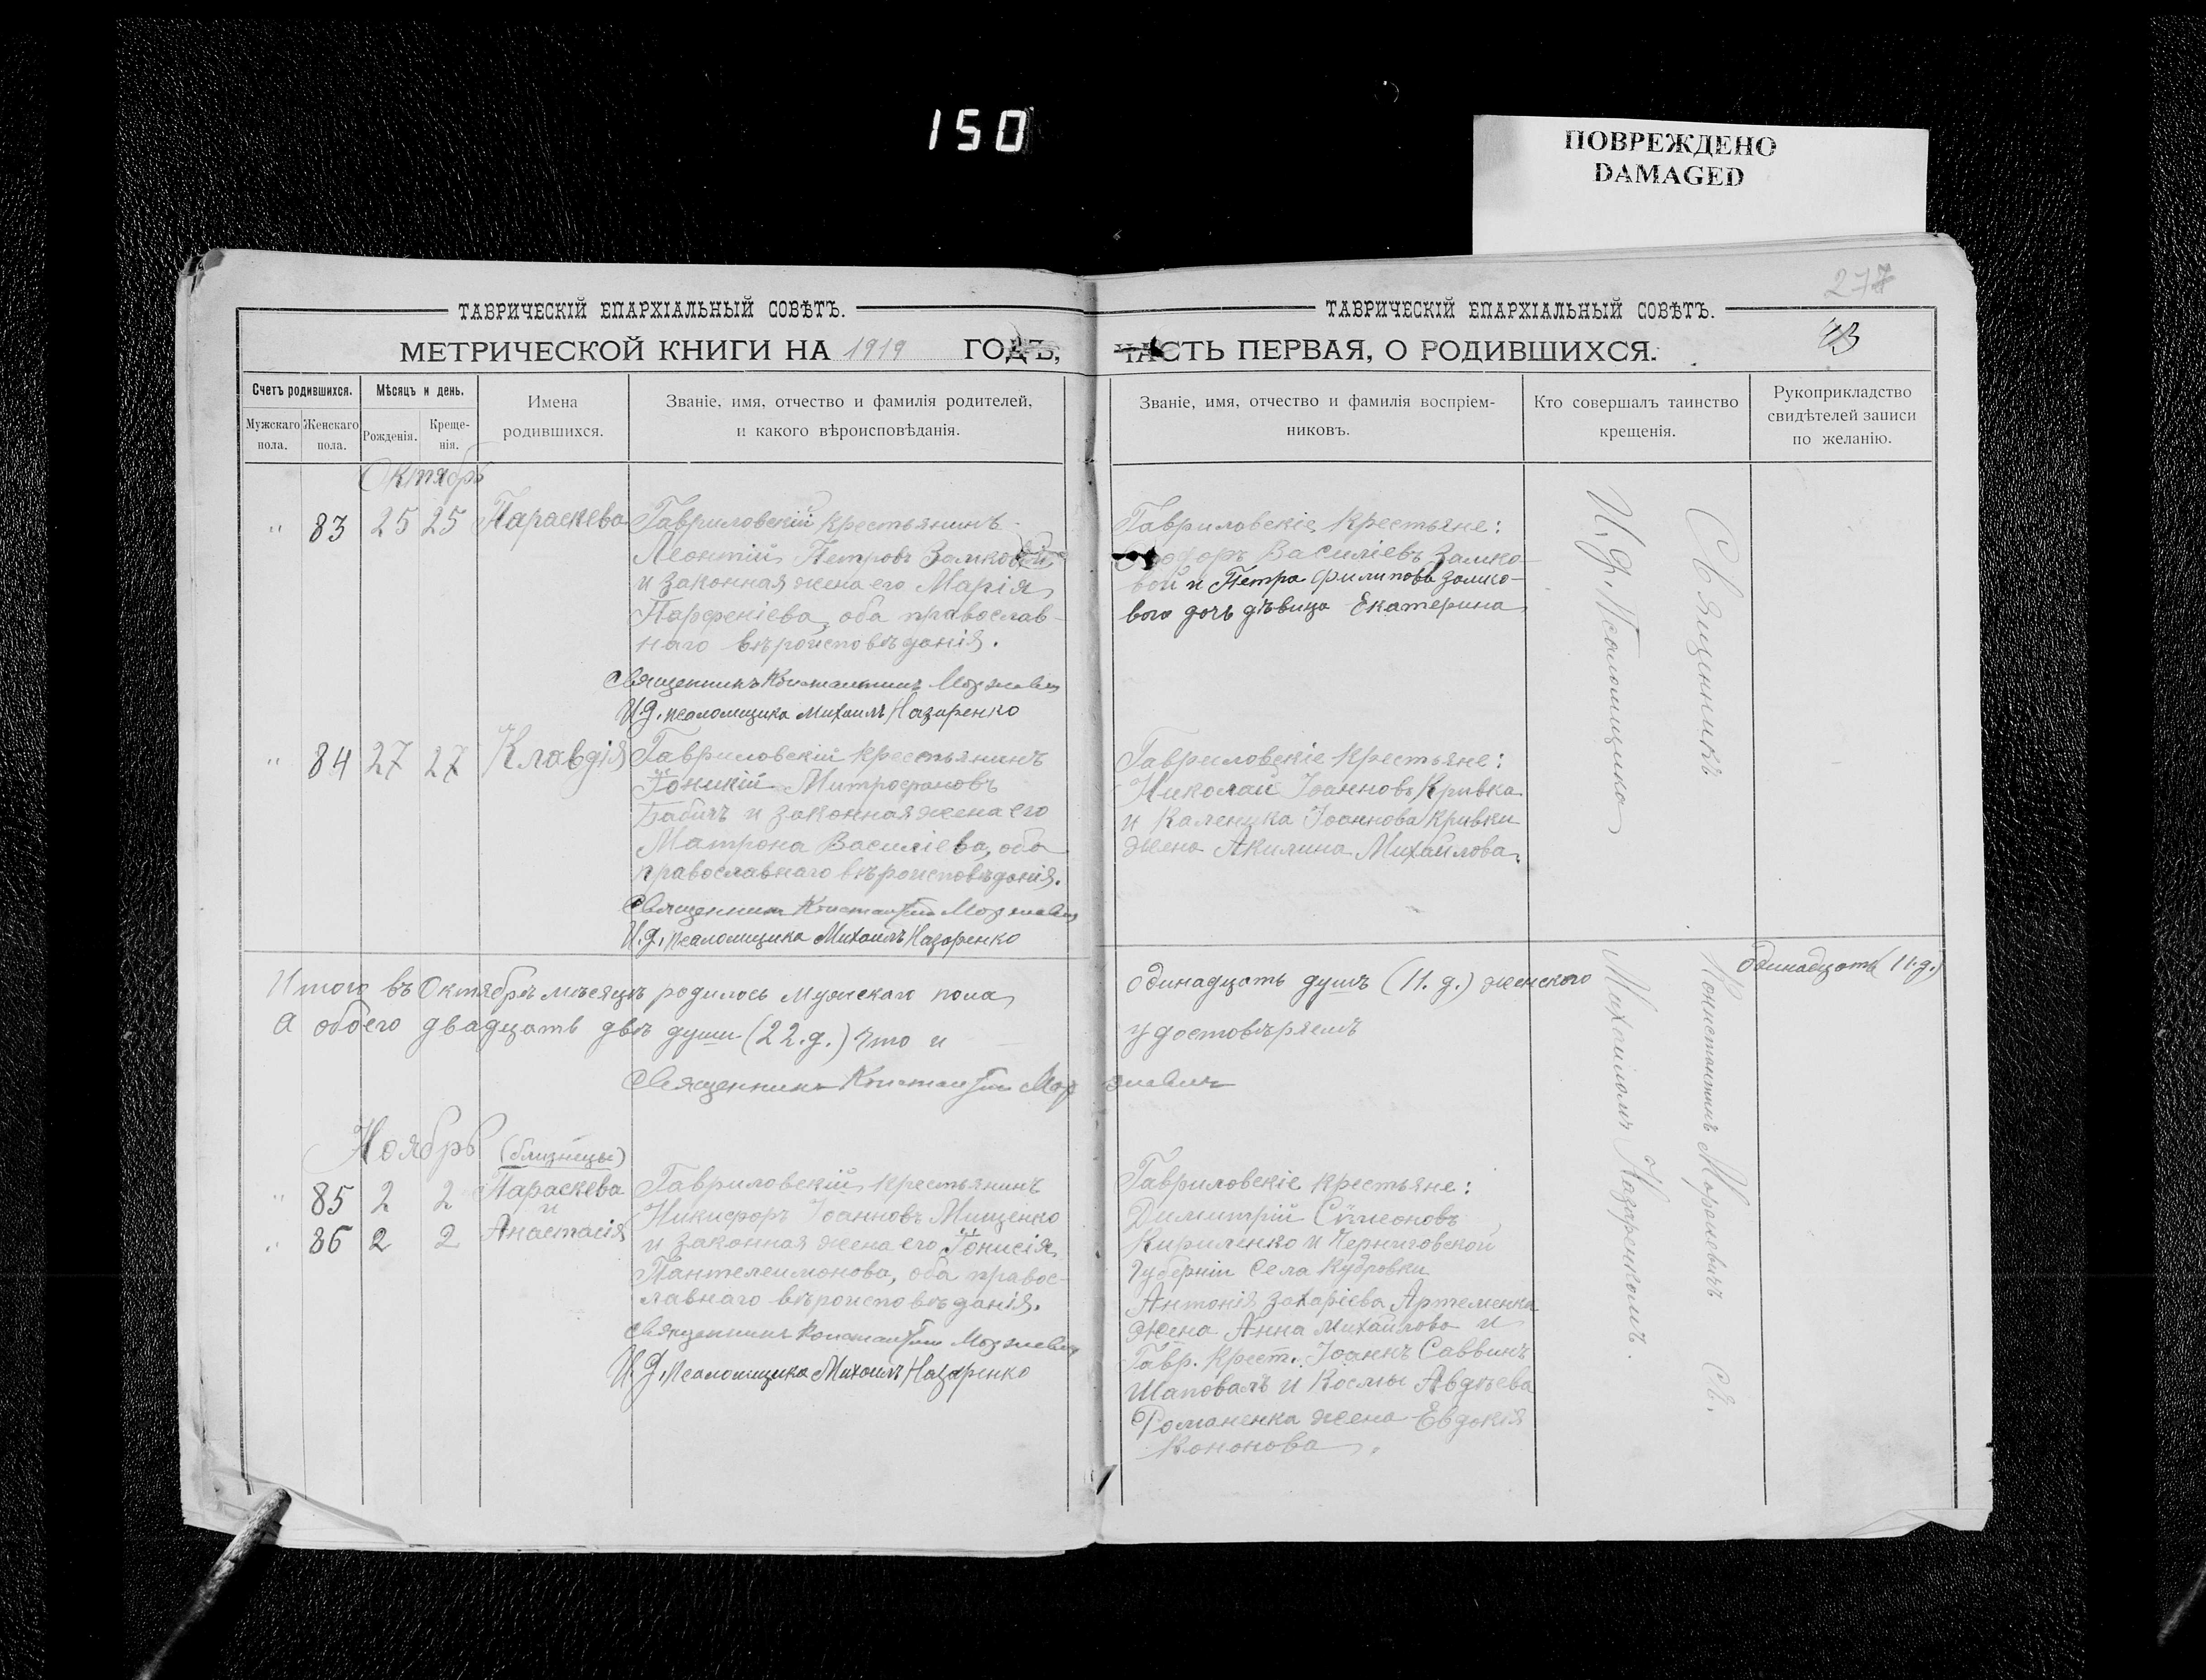 150
ПОВРЕЖДЕНО
DAMAGED
277
ТАВРИЧЕСКІЙ ЕПАРХІАЛЬНЫЙ СОВѢТЪ.
МЕТРИЧЕСКОЙ КНИГИ НА 1919 ГОДЪ,
Счетъ родившихся.
Мужскаго пола.
Женскаго пола.
Мѣсяцъ и день.
Рожденія.
Крещенія.
Имена
родившихся.
Званіе, имя, отчество и фамилія родителей,
и какого вѣроисповѣданія.
Октябрь
" 83 25 25 Параскева
Гавриловскій крестьянинъ
Леонтій Петровъ Замковой
и законная жена его Марія
Парфеніева, оба православ-
наго вѣроисповѣданія.
Священникъ Константинъ Моржевич
И.д. псаломщика Михаилъ Назаренко
" 84 27 27 Клавдія
Гавриловскій крестьянинъ
Іоникій Митрофановъ
Бабичъ и законная жена его
Матрона Василіева, оба
православнаго вѣроисповѣданія.
Священникъ Константин
И.д. псаломщика Михаилъ Назаренко
Итого въ Октябрѣ мѣсяцѣ родилось мужскаго пола
А обоего двадцать двѣ души (22.д.) что и
Священникъ Константин
Ноябрь
(близнецы)
" 85 2 2 Параскева
и
" 86 2 2 Анастасія
Гавриловскій крестьянинъ
Никифоръ Іоанновъ Мищенко
и законная жена его Іонисія
Пантелеимонова, оба правос-
лавнаго вѣроисповѣданія.
Священникъ Константин
И.д. псаломщика Михаилъ Назаренко
ТАВРИЧЕСКІЙ ЕПАРХІАЛЬНЫЙ СОВѢТЪ.
ЧАСТЬ ПЕРВАЯ, О РОДИВШИХСЯ.
Званіе, имя, отчество и фамилія воспріем-
никовъ.
Кто совершалъ таинство
крещенія.
Рукоприкладство
свидѣтелей записи
по желанію.
Гавриловскіе крестьяне:
Василіевъ Замко-
вой и Петра Филипова Замко-
вого дочь дѣвица Екатерина
Гавриловскіе крестьяне:
Николай Іоанновъ Кривка
и Каленика Іоаннова Кривки
жена Акилина Михайлова.
одинадцать душъ (11.д.) женского
одинадцать (11.д.)
удостовѣряемъ
Гавриловскіе крестьяне:
Димитрій Сѵмеоновъ
Кириленко и Черниговской
губерніи села Кудровки
Антонія Захаріева Артеменка
жена Анна Михайлова и
Гавр. крест. Іоаннъ Саввинъ
Шаповалъ и Космы Авдѣева
Романенка жена Евдокія
Кононова.
Священникъ Константинъ
И.д. Псаломщика Михаиломъ Назаренкомъ.